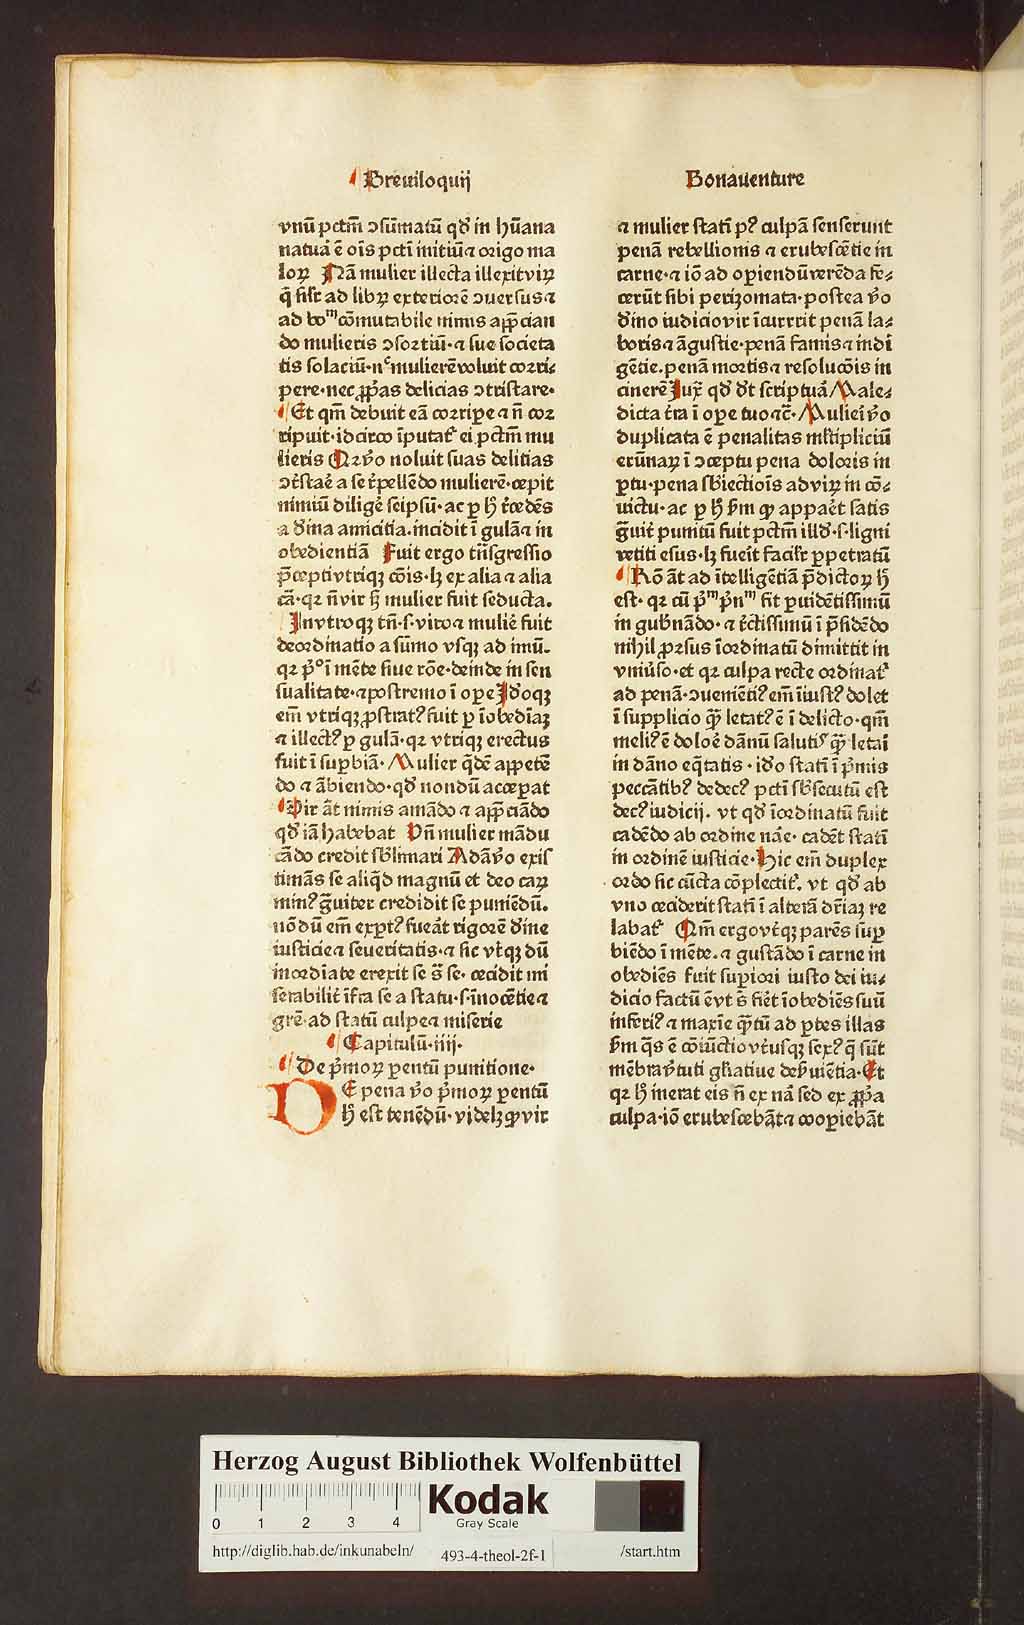 Breuiloquij
vnū pctm̄ ↄsūmatū qd̓ in hūana
natuā ē oīs pctī initiū ⁊ origo ma
loꝝ Nā mulier illecta illexit viꝝ
q̄ silr ad libꝝ exteriorē ↄuersus ⁊
ad boᵐ cōmutabile nimis app̄cian
do mulieris ↄsortiū · ⁊ sue societa
tis solaciū · nᶜ mulierē voluit corri⸗
pere · nec ꝓp̄as delicias ↄtristare ·
Et qm̄ debuit eā corripe ⁊ n̄ cor
ripuit · idcirco īputat᷑ ei pctm̄ mu
lieris Qꝛ v̄o noluit suas delitias
ↄtͥstaē a se r̄pellēdo mulierē · cepit
nimiū diligē seip̄sū · ac ꝑ ħ r̄cedēs
a d̓ina amicitia · incidit ī gulā ⁊ in
obedientiā Fuit ergo tn̄sgressio
p̄cepti vtriqꝫ cōis · lꝫ ex alia ⁊ alia
cā · qꝛ n̄ vir sꝫ mulier fuit seducta .
In vtroqꝫ tn̄ · s · viro ⁊ muliē fuit
deordinatio a sūmo vsqꝫ ad imū .
qꝛ p̄ͦ ī mēte siue rōe · deinde in sen
sualitate · ⁊ postremo ī ope Id̓oqꝫ
em̄ vtriqꝫ ꝓstratꝰ fuit ꝑ īobedīaꝫ
⁊ illectꝰ ꝑ gulā · qꝛ vtriqꝫ erectus
fuit ī suꝑbiā · Mulier qͥdē appetē
do ⁊ ābiendo · qd̓ nondū acceꝑat
Vir āt nimis amādo ⁊ app̄ciādo
qd̓ iā habebat Vn̄ mulier mādu
cādo credit sb̓limari Adā v̄o exis
timās se aliqͥd magnū et deo caꝝ
minꝰ g̃uiter credidit se puniēdū .
nōdū em̄ exꝑtꝰ fueāt rigorē d̓ine
iusticie ⁊ seueritatis · ⁊ sic vt̓qꝫ dū
inordīate erexit se s̄ se · cecidit mi
serabilit̓ īfra se a statu · s · īnocētie ⁊
grē · ad statū culpe ⁊ miserie
Capitulū · iiij ·
De p̄moꝝ ꝑentū punitione ·
DE pena v̄o p̄moꝝ ꝑentū
ħ est tenēdū · videlꝫ ꝙ vir
Bonauenture
⁊ mulier statī pꝰ culpā senserunt
penā rebellionis ⁊ erubescētie in
carne · ⁊ iō ad oꝑiendū verēda fe⸗
cerūt sibi perizomata · postea v̄o
d̓ino iudicio vir īcurrit penā la⸗
boris ⁊ āgustie · penā famis ⁊ indi
gētie . penā mortis ⁊ resolucōis in
cinerē Iux̄ qd̓ dt̄ scriptuā Male⸗
dicta t̓ra ī ope tuo ⁊c̄ · Mulieri v̄o
duplicata ē penalitas ml̓tipliciū
erūnaꝝ ī ↄceptu pena doloris in
ꝑtu · pena sb̓iectiōis ad viꝝ in cō⸗
uictu · ac ꝑ ħ ƥm ꝙ appaēt satis
g̃uit̓ punitū fuit pctm̄ illd̓ · s · ligni
vetiti esus · lꝫ fueīt facilr̄ ꝑpetratū
Rō āt ad ītelligētiā p̄dictoꝝ ħ
est · qꝛ cū p̄ᵐ p̄nᵐ sit ꝓuidētissimū
in gub̓nādo · ⁊ r̄ctissimū ī p̄sidēdo
nihil ꝓrsus īordinatū dimittit in
vniu̓so · et qꝛ culpa recte ordinat᷑
ad penā · ↄueniētiꝰ em̄ īiustꝰ dolet
ī supplicio qͣ̄ letatꝰ ē ī delicto · qm̄
meliꝰ ē doloē dānū salutis qͣ̄ letai
in dāno eqͥtatis · id̓o statī ī p̄mis
peccātibꝰ dedecꝰ pctī sb̓secutū est
decꝰ iudicij . vt qd̓ īordinatū fuit
cadēdo ab ordine nāe · cadēt statī
in ordinē iusticie · Hic em̄ duplex
ordo sic cūcta cōplectit᷑ . vt qd̓ ab
vno ceciderit statī ī alterā dr̄iaꝫ re
labat᷑ Qm̄ ergo vt̓qꝫ parēs suꝑ
biēdo ī mēte . ⁊ gustādo ī carne in
obediēs fuit suꝑiori iusto dei iu⸗
dicio factū ē vt s̄ fiēt īobediēs suū
inferiꝰ ⁊ maxīe qͣ̄tū ad ꝑtes illas
ƥm qͣs ē cōiūctio vt̓usqꝫ sexꝰ q̄ sūt
mēbra v̓tuti gn̄atiue deƥuiētia · Et
qꝛ ħ inerat eis n̄ ex nā sed ex ꝓp̄a
culpa · iō erubescebāt ⁊ cooꝑiebāt
Herzog August Bibliothek Wolfenbüttel
0 1 2 3 4
Kodak
Gray Scale
http://diglib.hab.de/inkunabeln/ 493-4-theol-2f-1 /start.htm